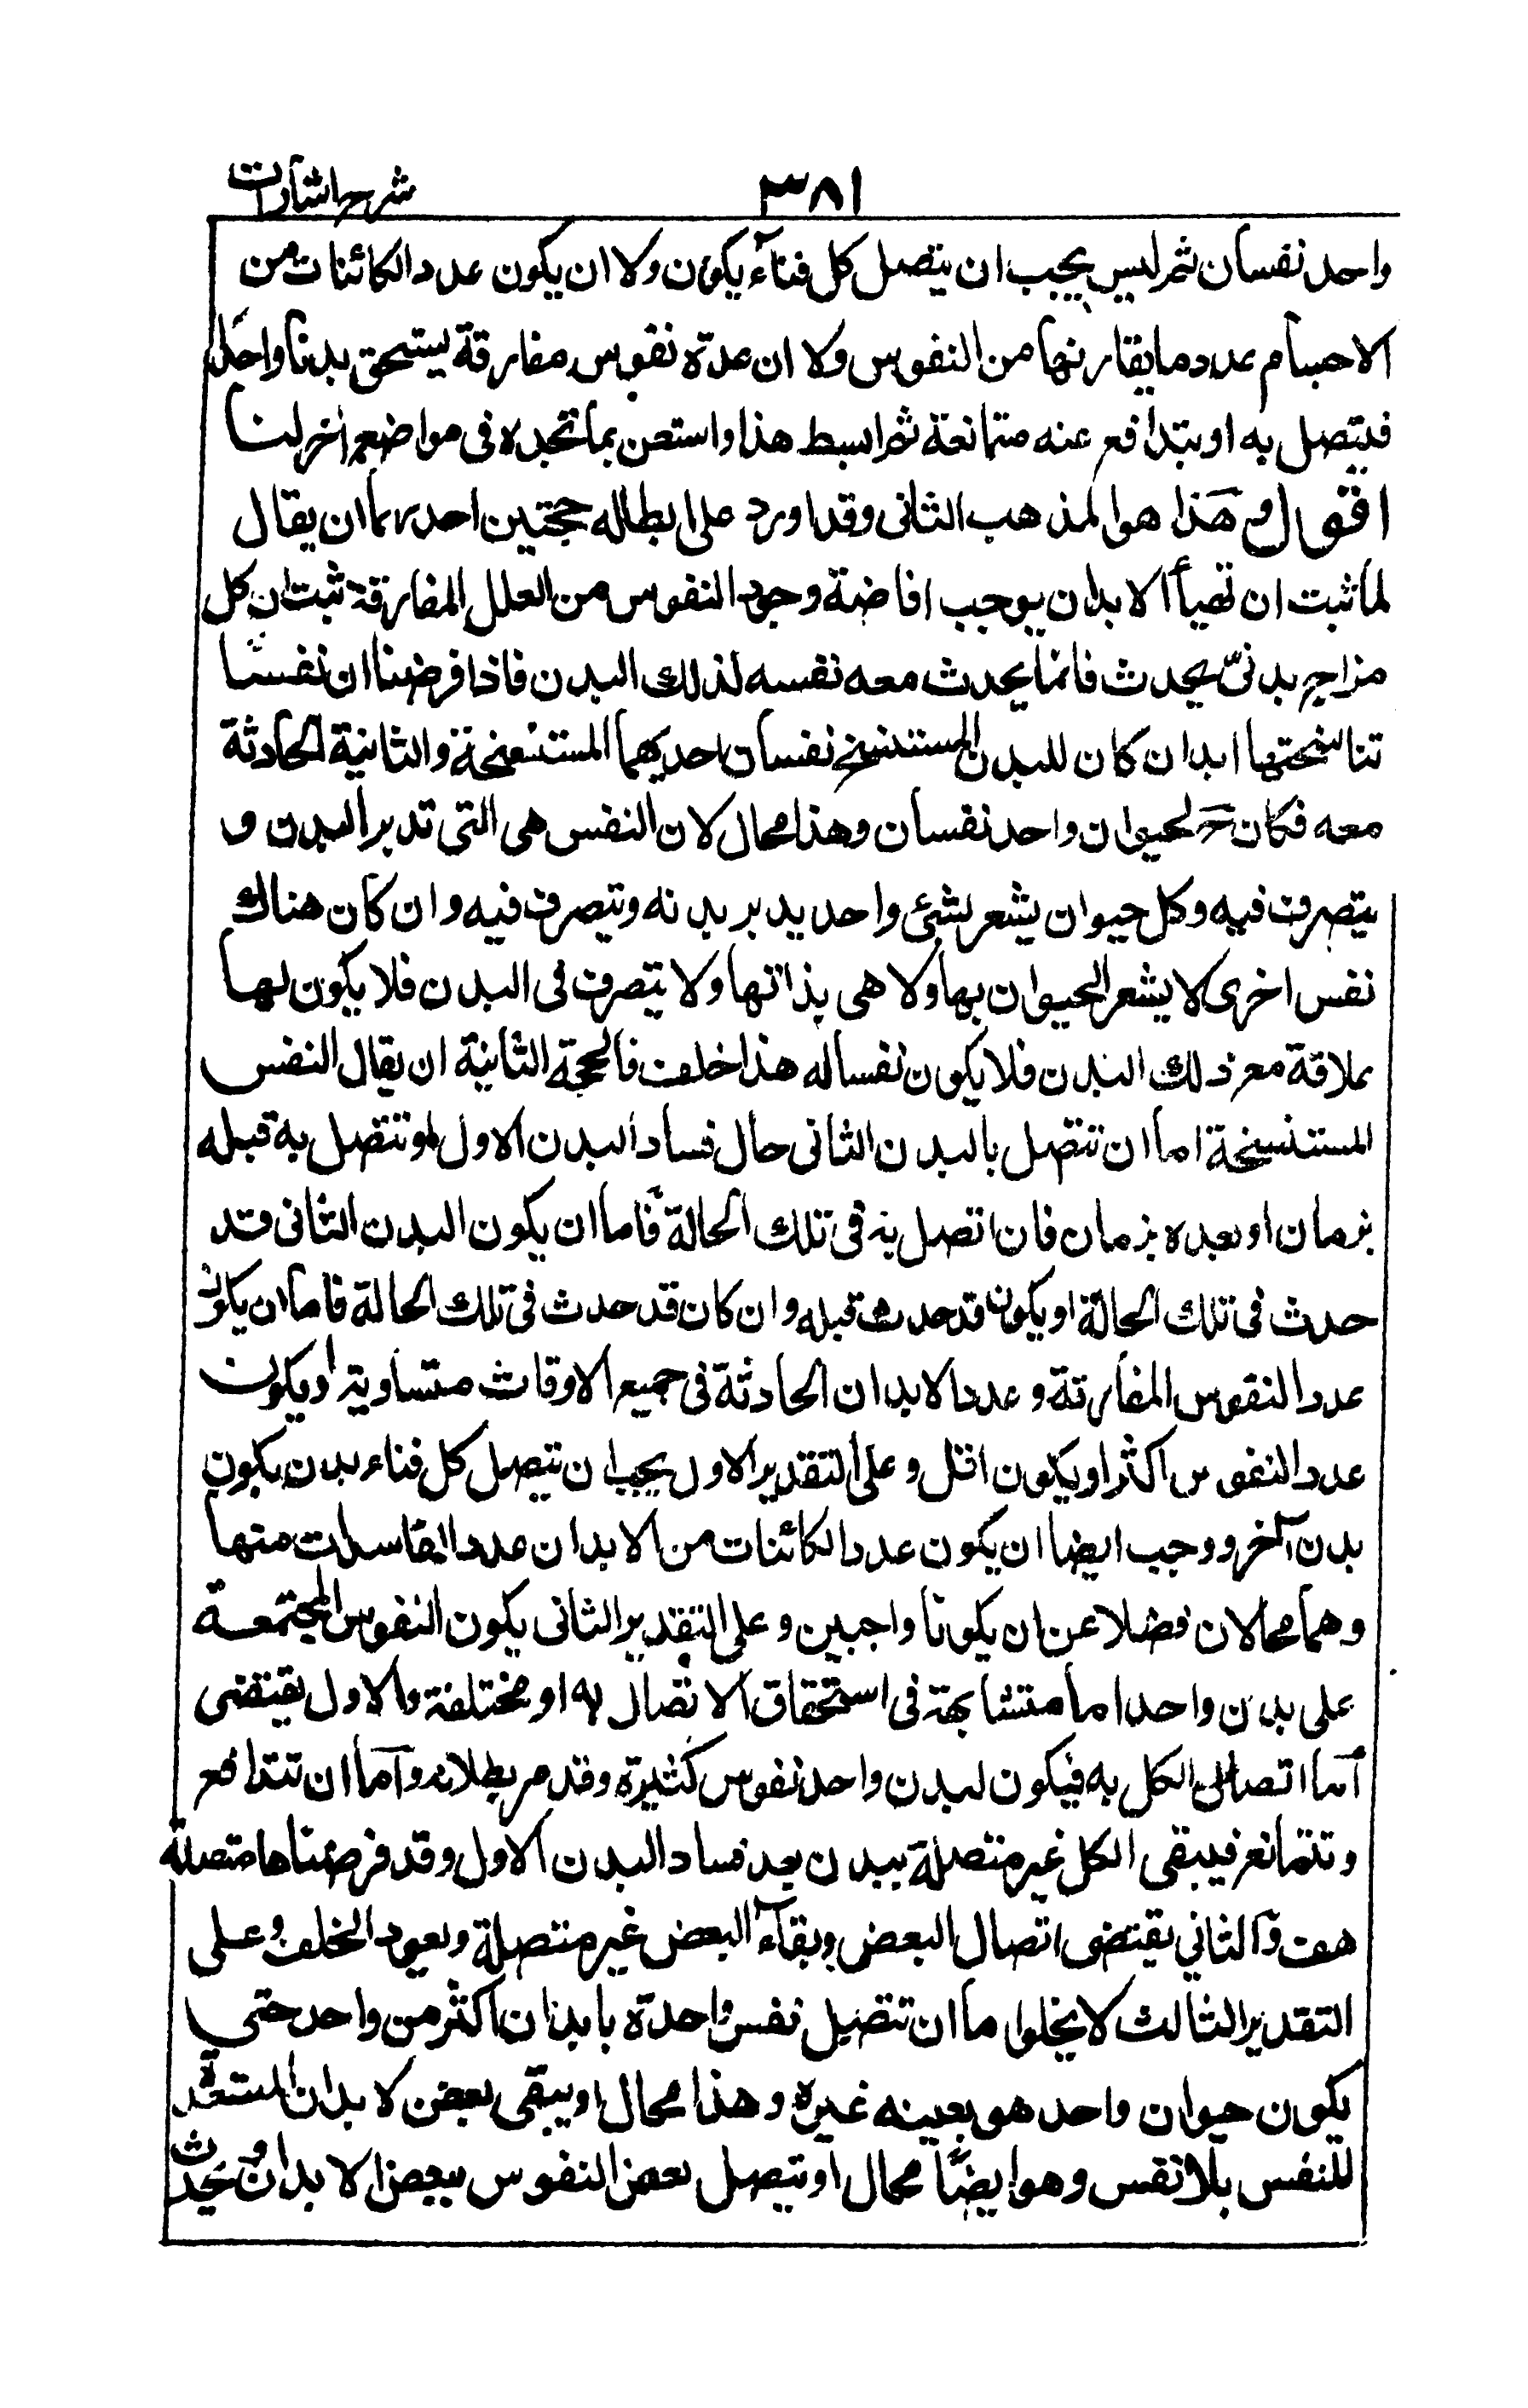 شرح اشارات
٣٨١
واحد نفسان ثم ليس يجب ان يتصل كل فناء يكون ولا ان يكون عدد الكائنات من
الاجسام عدد ما يقارنها من النفوس ولا ان عدة نفوس مفارقة يستحق بدنا واحدا
فيتصل به او يتدافع عنه متمانعة ثم ابسط هذا واستعن بما تجده فى مواضع اخر لنا
اقول وهذا هو المذهب الثانى وقد اورد على ابطاله حجتين احدهما ان يقال
لما ثبت ان تهيأ الابدان يوجب افاضة وجود النفوس من العلل المفارقة ثبت ان كل
مزاج بدنىّ يحدث فانما يحدث معه نفسه لذلك البدن فاذا فرضنا ان نفسا
تناسختها ابدان كان للبدن المستنسخ نفسان احديهما المستنسخة والثانية الحادثة
معه فكان ح لحيوان واحد نفسان وهذا محال لان النفس هى التى تدبر البدن و
يتصرف فيه وكل حيوان يشعر بشئ واحد يدبر بدنه ويتصرف فيه وان كان هناك
نفس اخرى لا يشعر الحيوان بها ولا هى بذاتها ولا يتصرف فى البدن فلا يكون لها
علاقة مع ذلك البدن فلا يكون نفسا له هذا خلف فالحجة الثانية ان يقال النفس
المستنسخة اما ان تتصل بالبدن الثانى حال فساد البدن الاول او تتصل به قبله
بزمان او بعده بزمان فان اتصل به فى تلك الحالة فاما ان يكون البدن الثانى قد
حدث فى تلك الحالة او يكون قد حدث قبله وان كان قد حدث فى تلك الحالة فاما ان يكون
عدد النفوس المفارقة وعدد الابدان الحادثة فى جميع الاوقات متساوية او يكون
عدد النفوس اكثر او يكون اقل وعلى التقدير الاول يجب ان يتصل كل فناء بدن بكون
بدن آخر ووجب ايضا ان يكون عدد الكائنات من الابدان عدد الفاسدات منها
وهما محالان فضلا عن ان يكونا واجبين وعلى التقدير الثانى يكون النفوس المجتمعة
على بدن واحد اما متشابهة فى استحقاق الاتصال به او مختلفة والاول يقتضى
اما اتصال الكل به فيكون لبدن واحد نفوس كثيرة وقد مر بطلانه واما ان تتدافع
وتتمانع فيبقى الكل غير متصلة ببدن بعد فساد البدن الاول وقد فرضناها متصلة
هف والثاني يقتضى اتصال البعض وبقاء البعض غير متصلة ويعود الخلف وعلى
التقدير الثالث لا يخلوا ما ان تتصل نفس واحدة بابدان اكثر من واحد حتى
يكون حيوان واحد هو بعينه غيره وهذا محال او يبقى بعض لا بدان المستعدة
للنفس بلا نفس وهو ايضًا محال او يتصل بعض النفوس ببعض الابدان ويحدث